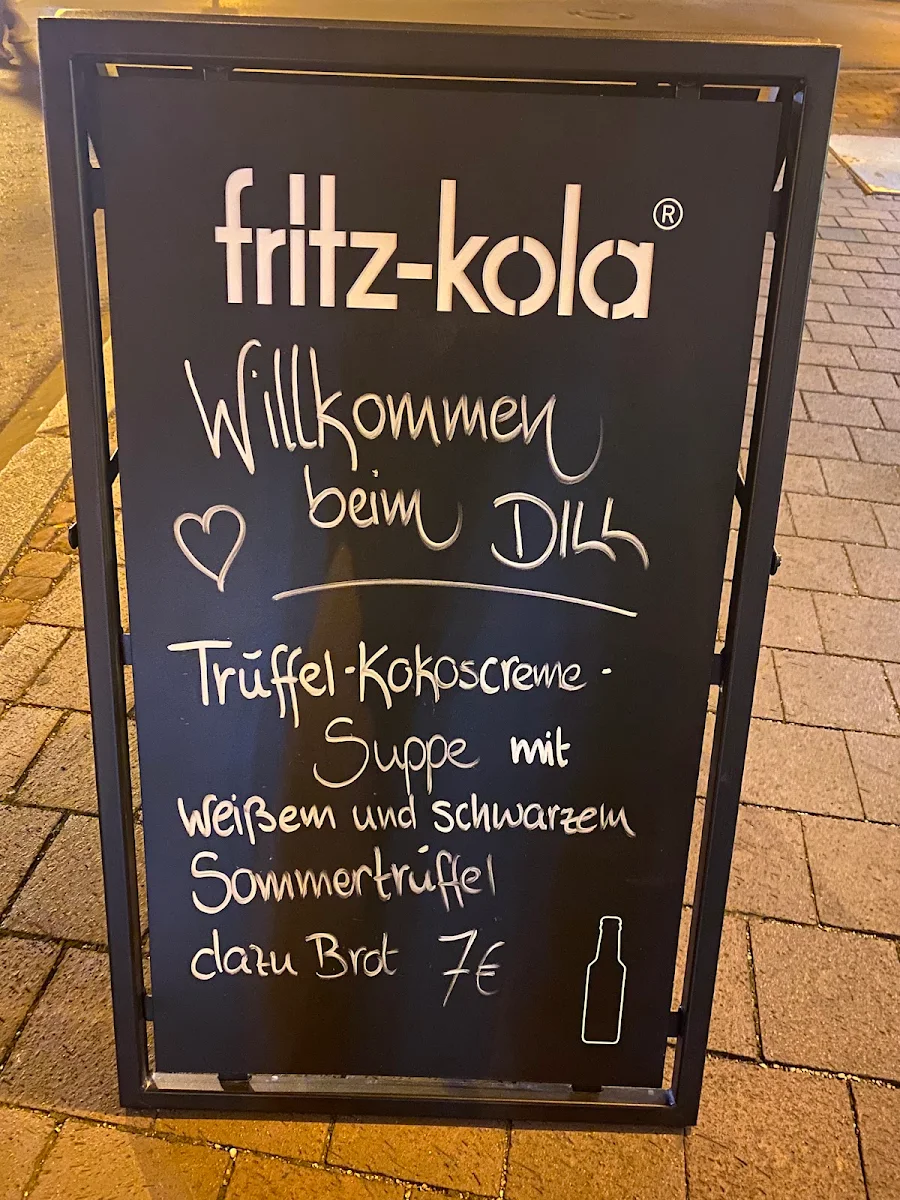 fritz-kola®
Willkommen
beim DILL
Trüffel-Kokoscreme-
Suppe mit
weißem und schwarzem
Sommertrüffel
dazu Brot 7€